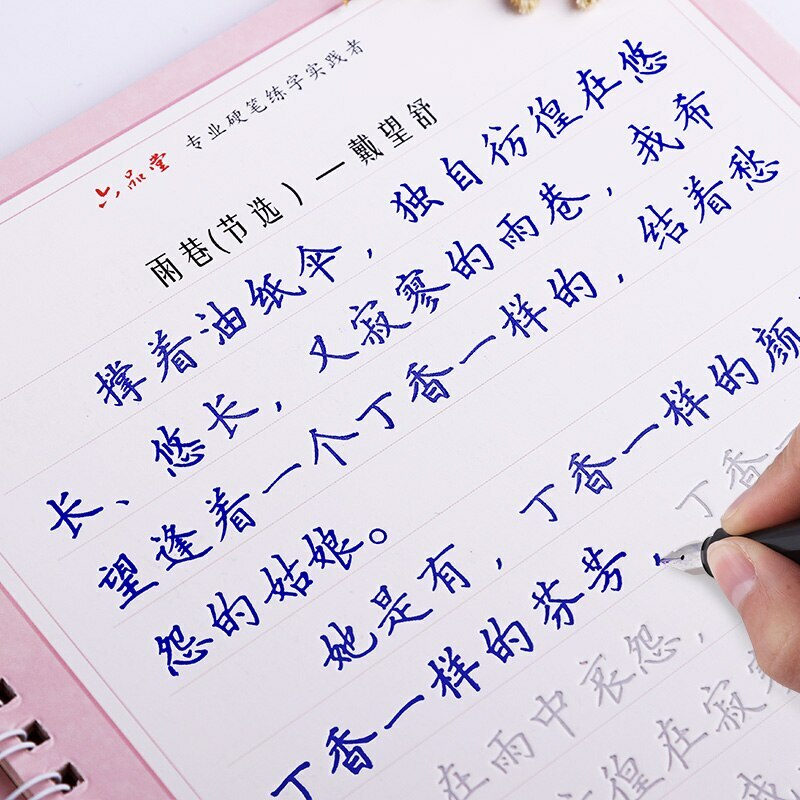 六品堂 专业硬笔练字实践者
雨巷(节选)—戴望舒
撑着油纸伞，独自彷徨在悠
长、悠长，又寂寥的雨巷，我希
望逢着一个丁香一样的，结着愁
怨的姑娘。
她是有，丁香一样的颜
丁香一样的芬芳，丁香一
在雨中哀怨，
徨在寂寥
我